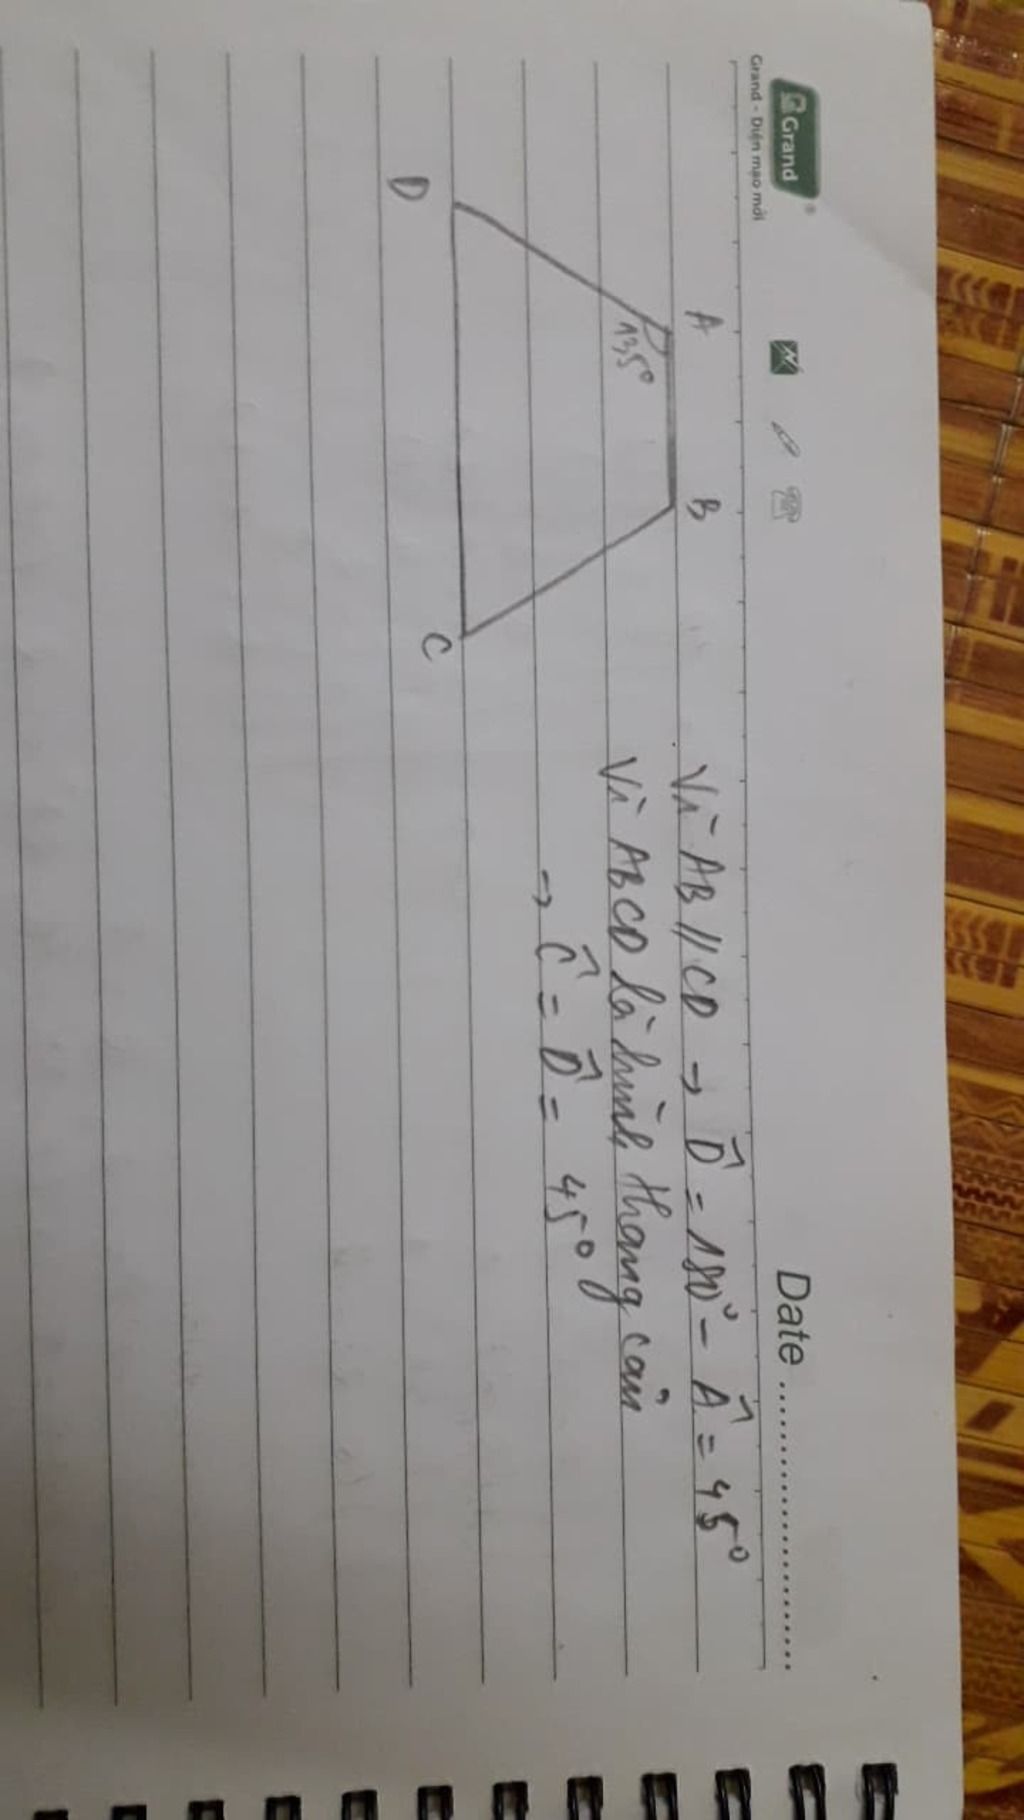 Grand
Grand - Diện mạo mới
Date
A
B
135°
D
C
Vì AB // CD → D̂ = 180° - Â = 45°
Vì ABCD là hình thang cân
→ Ĉ = D̂ = 45°